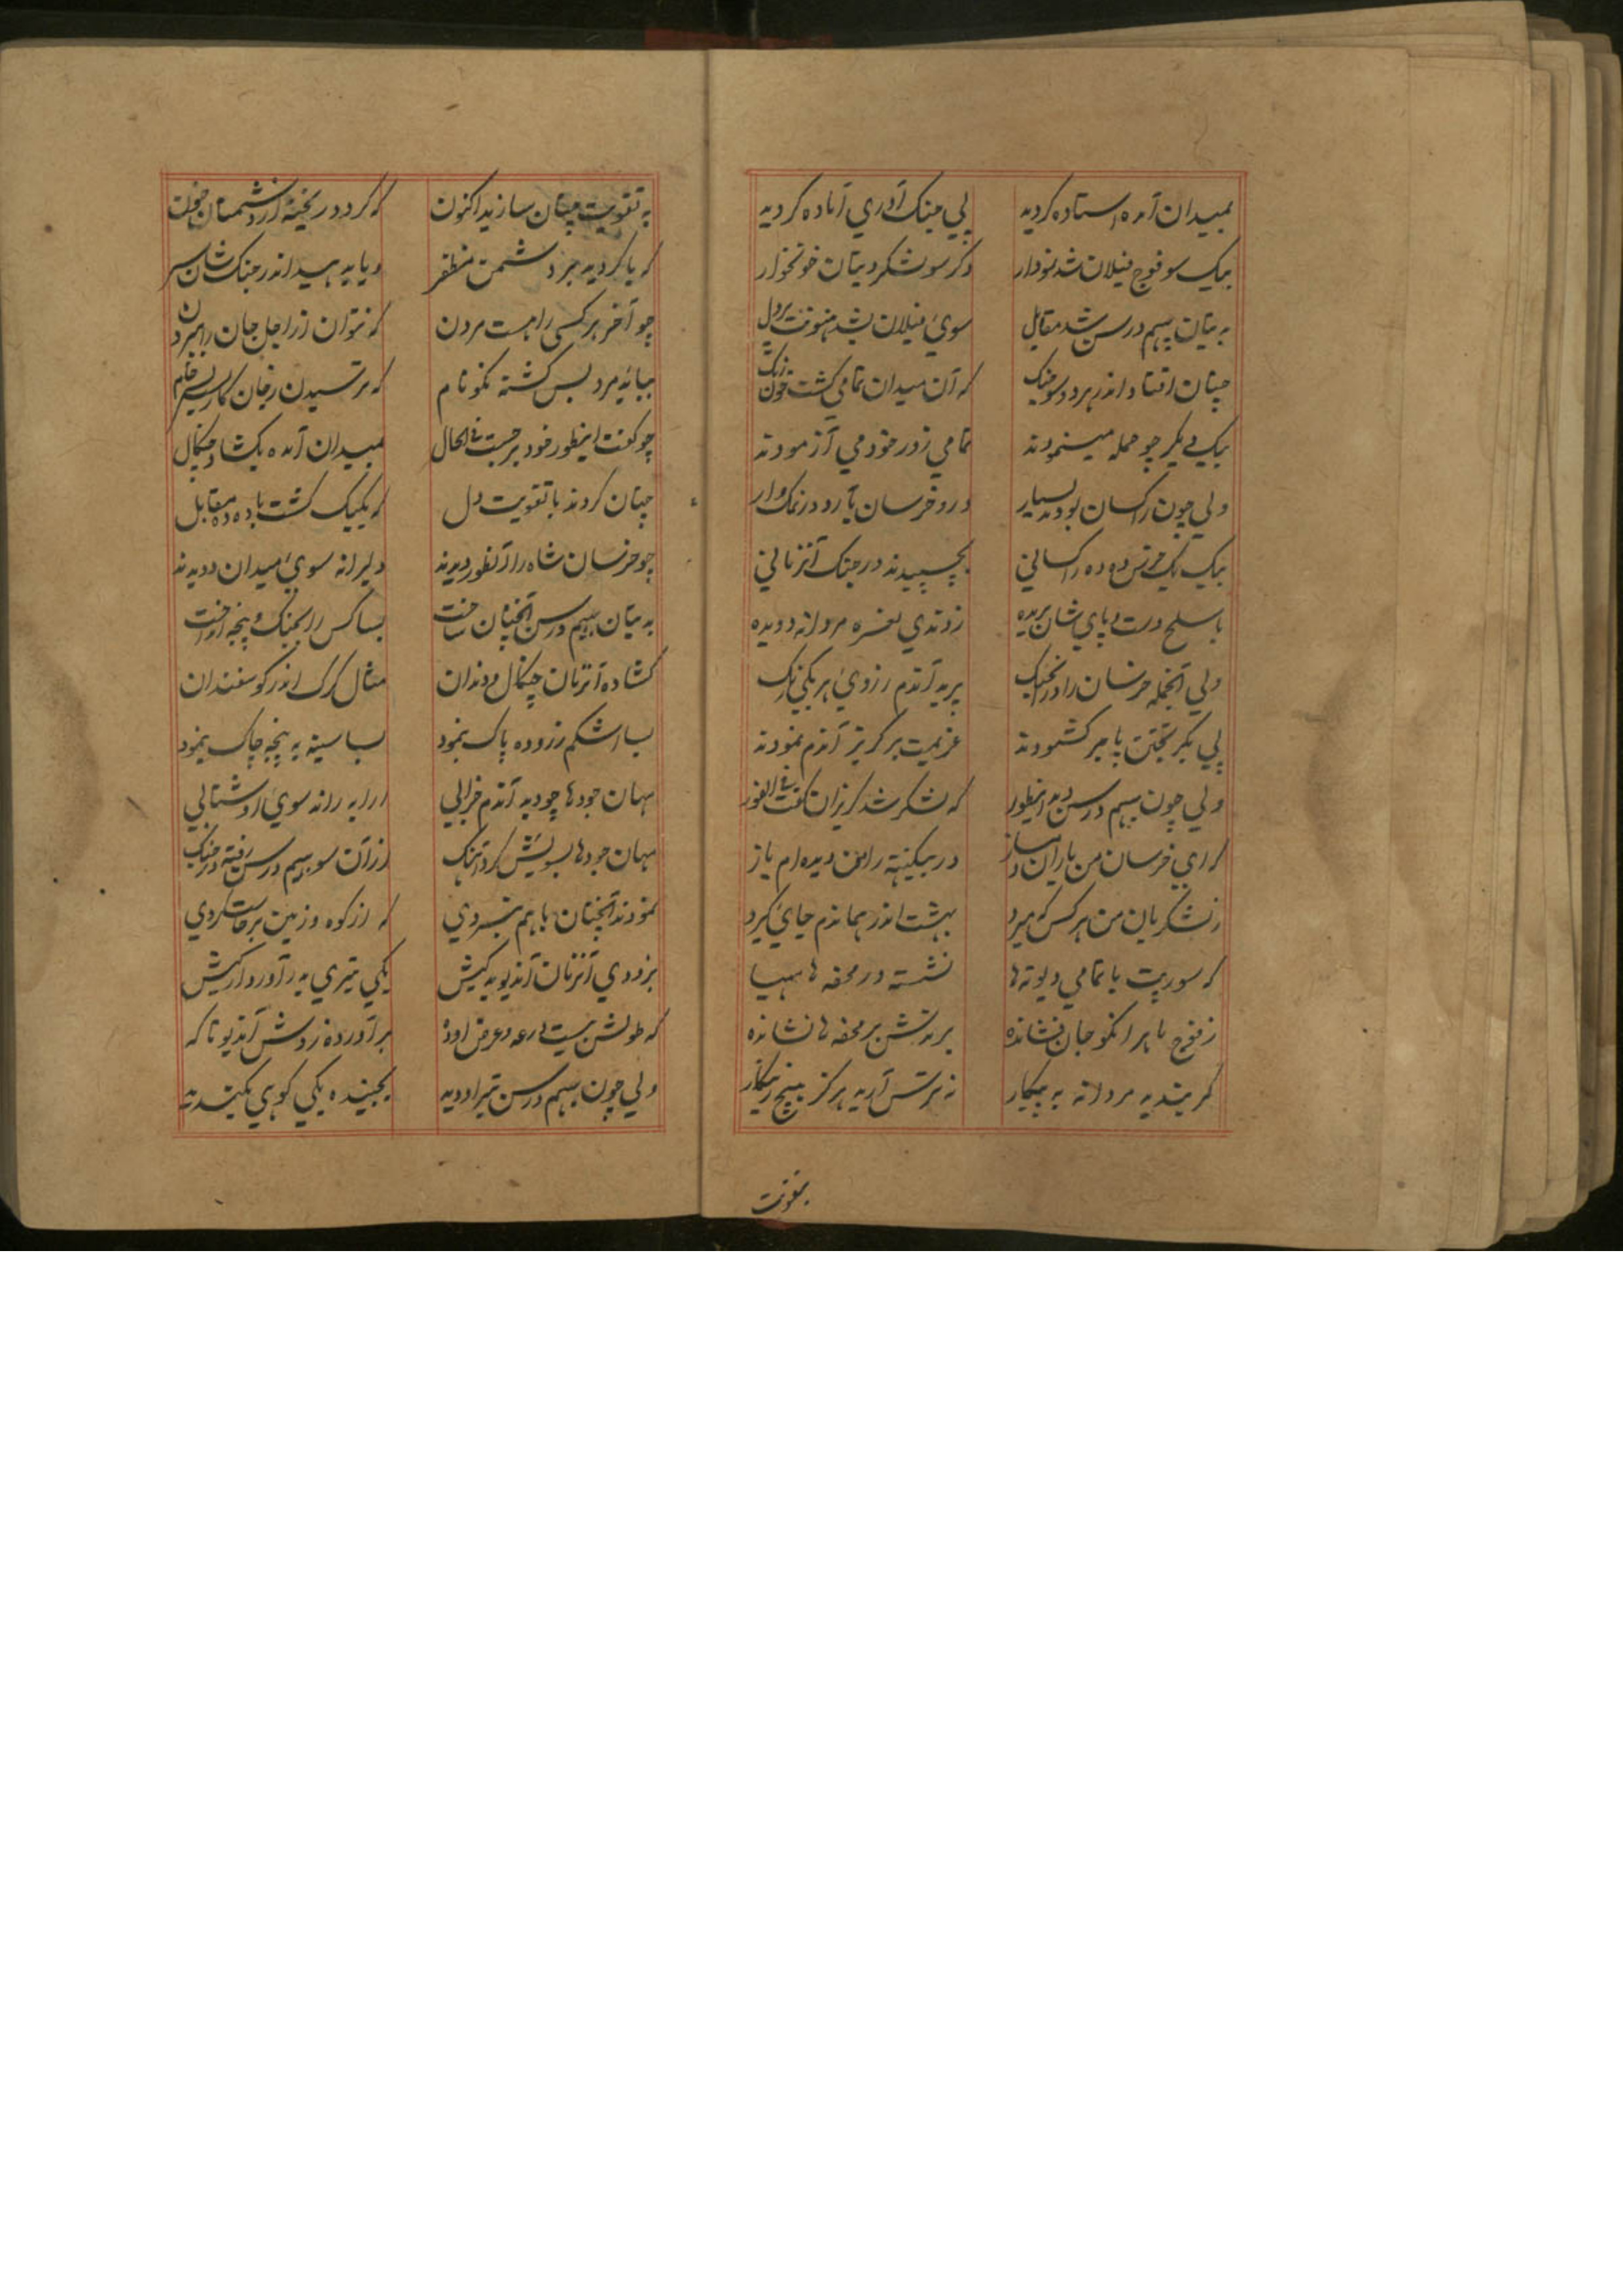 بمیدان آمده استاده کردید پی جنک آوری آماده کردید
بیک سو فوج فیلان شد نمودار دکر سو لشکر دیتان خونخوار
به دیتان بهیم درسن شد مقابل سوی فیلان بشد هنونت پردل
چنان افتاد اندر هر دو سو جنک که آن میدان تمامی کشت خون رنک
بیک دیکر چو حمله مینمودند تمامی زور خود می آزمودند
ولی چون راکسان بودند بسیار درو خرسان
بیک یک خرس ده ده راکسانی بچسپیدند در جنک آنزمانی
با سلح دست و پای شان بریده زدندی نعره مردانه دویده
ولی آنجمله خرسان را در آنجنک پرید آندم ز روی هر یکی رنک
پی بکریختن پا بر کشودند عزیمت بر کریز آندم نمودند
ولی چون بهیم درسن دید اینطور که لشکر شد کریزان کفت فی الفور
که ای خرسان من یاران دمساز در بیکنته را من دیده ام باز
ز لشکریان من هر کس که میرد بهشت اندر هماندم جای کیرد
که سورپت با تمامی دیوته ها نشسته در محفه ها مهیا
ز فوج ما هر انکو جان فشانده برندش بر محفه ها نشانده
کمر بندید مردانه به پیکار نه ترس آرید هرکز هیچ زینکار
بتقویت
به تقویت چنان سازید اکنون که کردد ریخته از دشمنان خون
که یا کردید بر دشمن مظفر و یا بدهید اندر جنک شان سر
چو آخر هر کسی را هست مردن که نتوان از اجل جان را ببردن
بباید مرد بس کشته نکو نام که ترسیدن ز جان کاریست بس خام
چو کفت اینطور خود برجست فی الحال بمیدان آمده بکشاد چنکال
چنان کردند با تقویت دل که یکیک کشت با ده ده مقابل
چو خرسان شاه را زآنطور دیدند دلیرانه سوی میدان دویدند
به دیتان بهیم درسن آنچنان ساخت بسا کس را بچنک و پنجه انداخت
کشاده آنزمان چنکال و دندان مثال کرک اندر کوسفندان
بسا اشکم ز روده پاک بنمود بسا سینه به پنجه چاک بنمود
مهان جودها چو دید آندم خرابی ارابه رانده سوی او شتابی
مهان جودها بسویش کرد آهنک از آن سو بهیم درسن رفته در جنک
نمودند آنچنان با هم نبردی که از کوه و زمین برخاست کردی
بزودی آنزمان آندیو بدکیش یکی تیری بدر آورد از کیش
که طولش بیست درعه و عرض او ده برآورده زدش آندیو ناکه
ولی چون بهیم درسن تیر او دید بجنبیده یکی کوهی بکندید